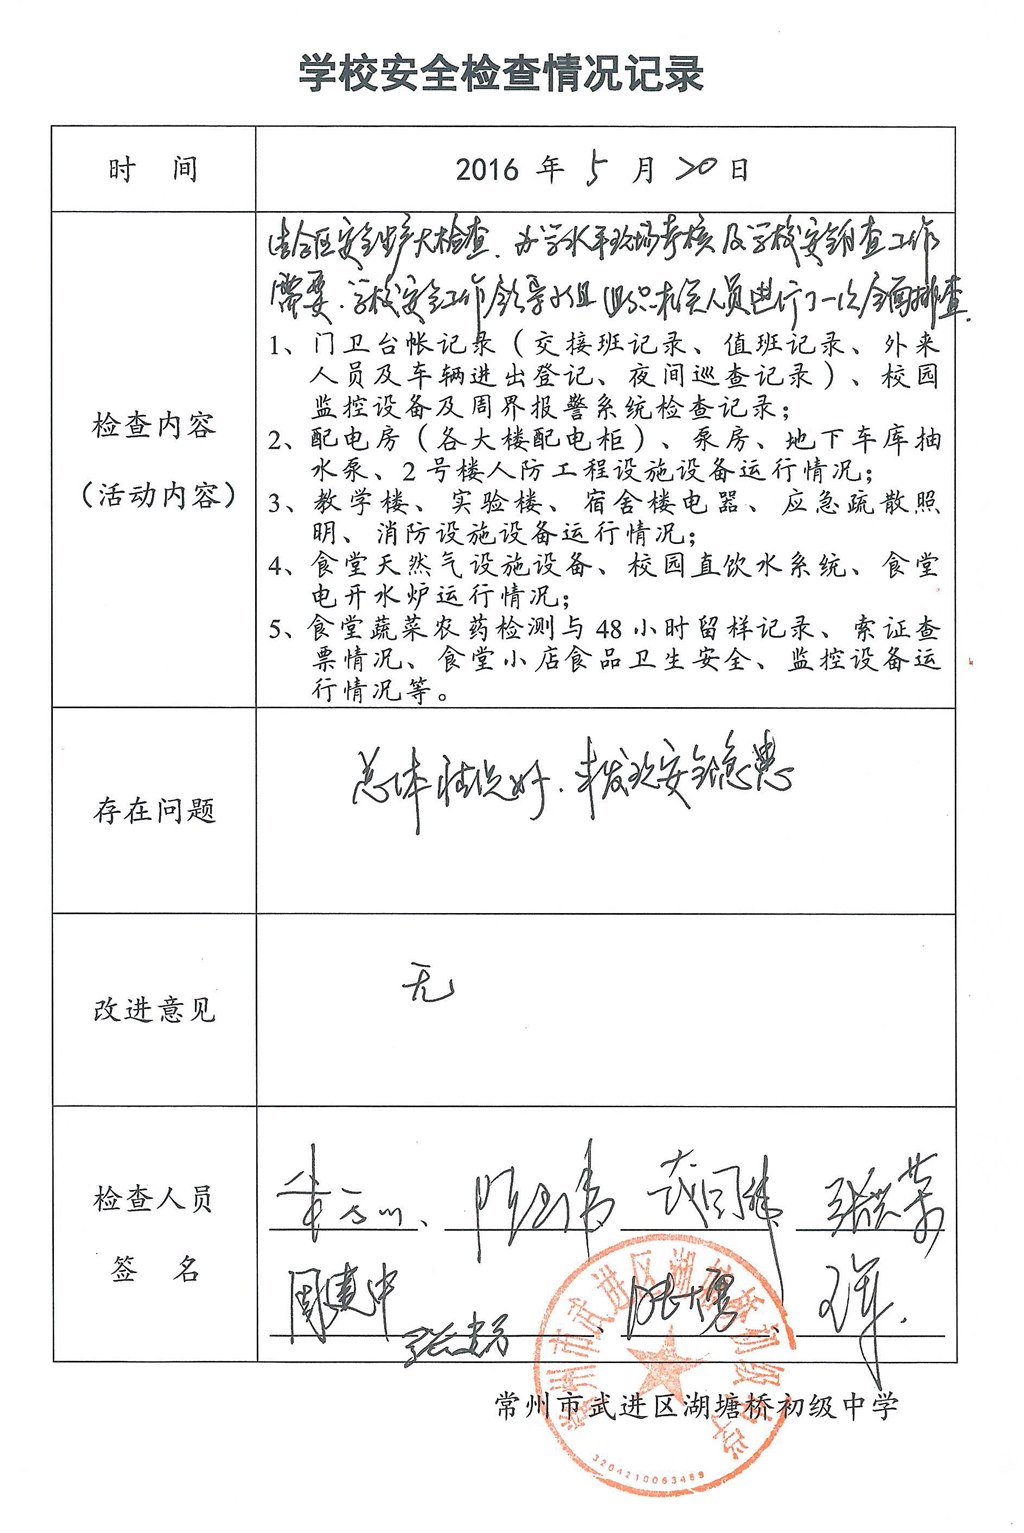 学校安全检查情况记录
时 间
2016 年 5 月 20 日
结合区安全生产大检查、办学水平现场考核及学校安全自查工作
需要,学校安全工作领导小组组织相关人员进行了一次全面排查.
检查内容
(活动内容)
1、门卫台帐记录(交接班记录、值班记录、外来
人员及车辆进出登记、夜间巡查记录)、校园
监控设备及周界报警系统检查记录;
2、配电房(各大楼配电柜)、泵房、地下车库抽
水泵、2 号楼人防工程设施设备运行情况;
3、教学楼、实验楼、宿舍楼电器、应急疏散照
明、消防设施设备运行情况;
4、食堂天然气设施设备、校园直饮水系统、食堂
电开水炉运行情况;
5、食堂蔬菜农药检测与 48 小时留样记录、索证查
票情况、食堂小店食品卫生安全、监控设备运
行情况等。
存在问题
总体状况好.未发现安全隐患
改进意见
无
检查人员
签 名
周建中
常州市武进区湖塘桥初级中学
常州市武进区湖塘桥初级中学
3204210063468